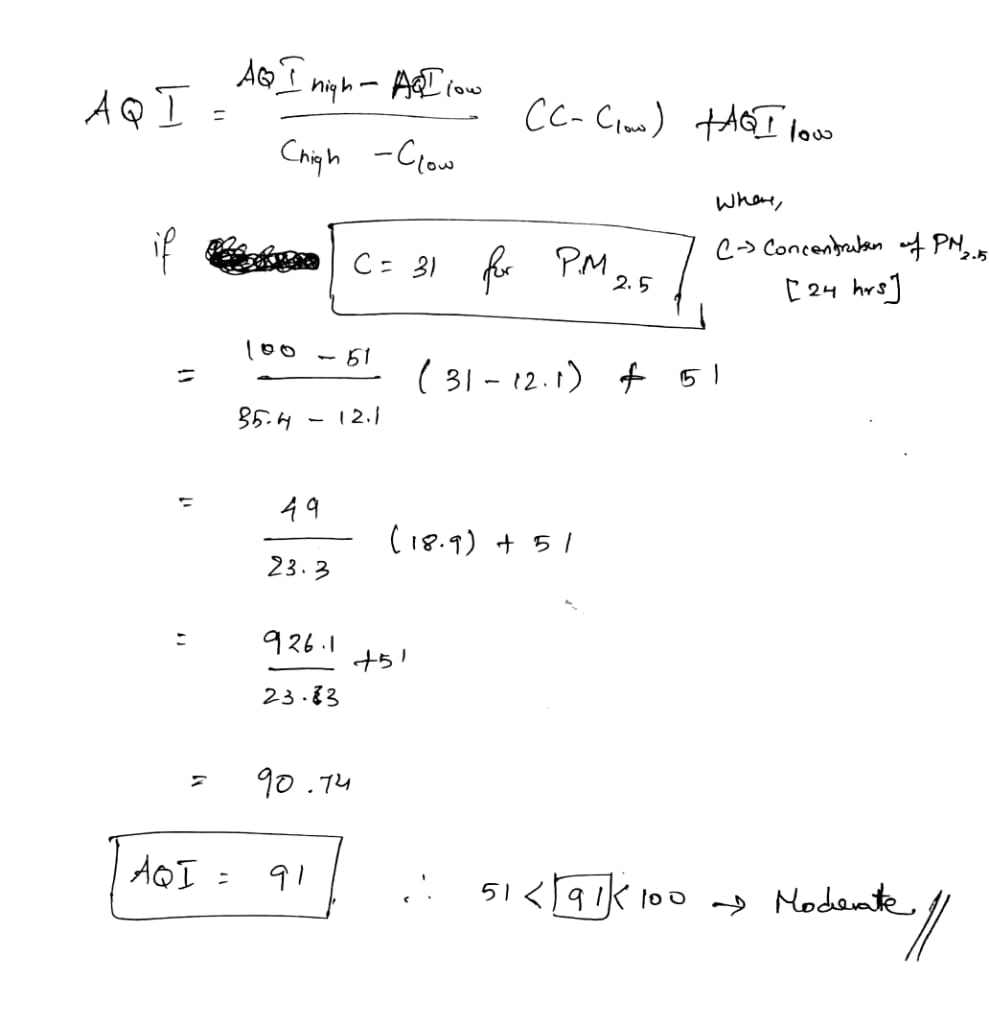 AQI = AQI high - AQI low / Chigh - Clow (C - Clow) + AQI low
where,
if C = 31 for P.M 2.5
C → Concentration of PM2.5
[24 hrs]
= 100 - 51 / 35.4 - 12.1 (31 - 12.1) + 51
= 49 / 23.3 (18.9) + 51
= 926.1 / 23.3 + 51
= 90.74
AQI = 91 ∴ 51 < 91 < 100 → Moderate //